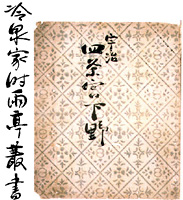 冷泉家時雨亭叢書
宇治
四条宮下野